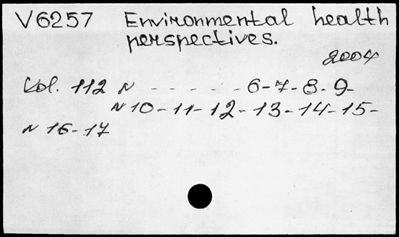 V6257 Environmental health
perspectives.
2004
Vol. 112 N - - - - - 6-7-8-9-
N 10-11-12-13-14-15-
N 16-17